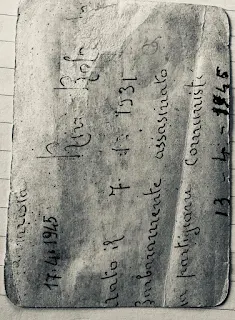 17.4.1945
Rivi
nato il 7.1.1931
Barbaramente assassinato
partigiani comunisti
13-4-1945